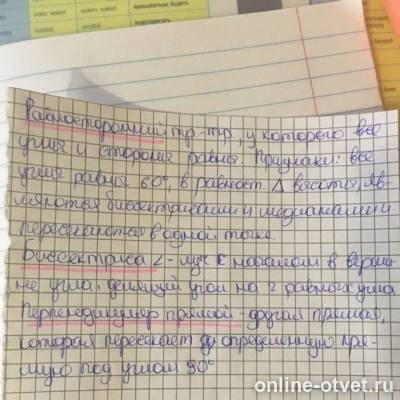 Равносторонний тр.-тр., у которого все
углы и стороны равны. Признаки: все
углы равны 60°, в равност. Δ высоты, яв-
ляются биссектрисами и медианами и
пересекаются в одной точке.
Биссектриса ∠ - луч с началом в верши-
не угла, делящий угол на 2 равных угла
Перпендикуляр прямой - другая прямая,
которая пересекает определенную пря-
мую под углом 90°
online-otvet.ru